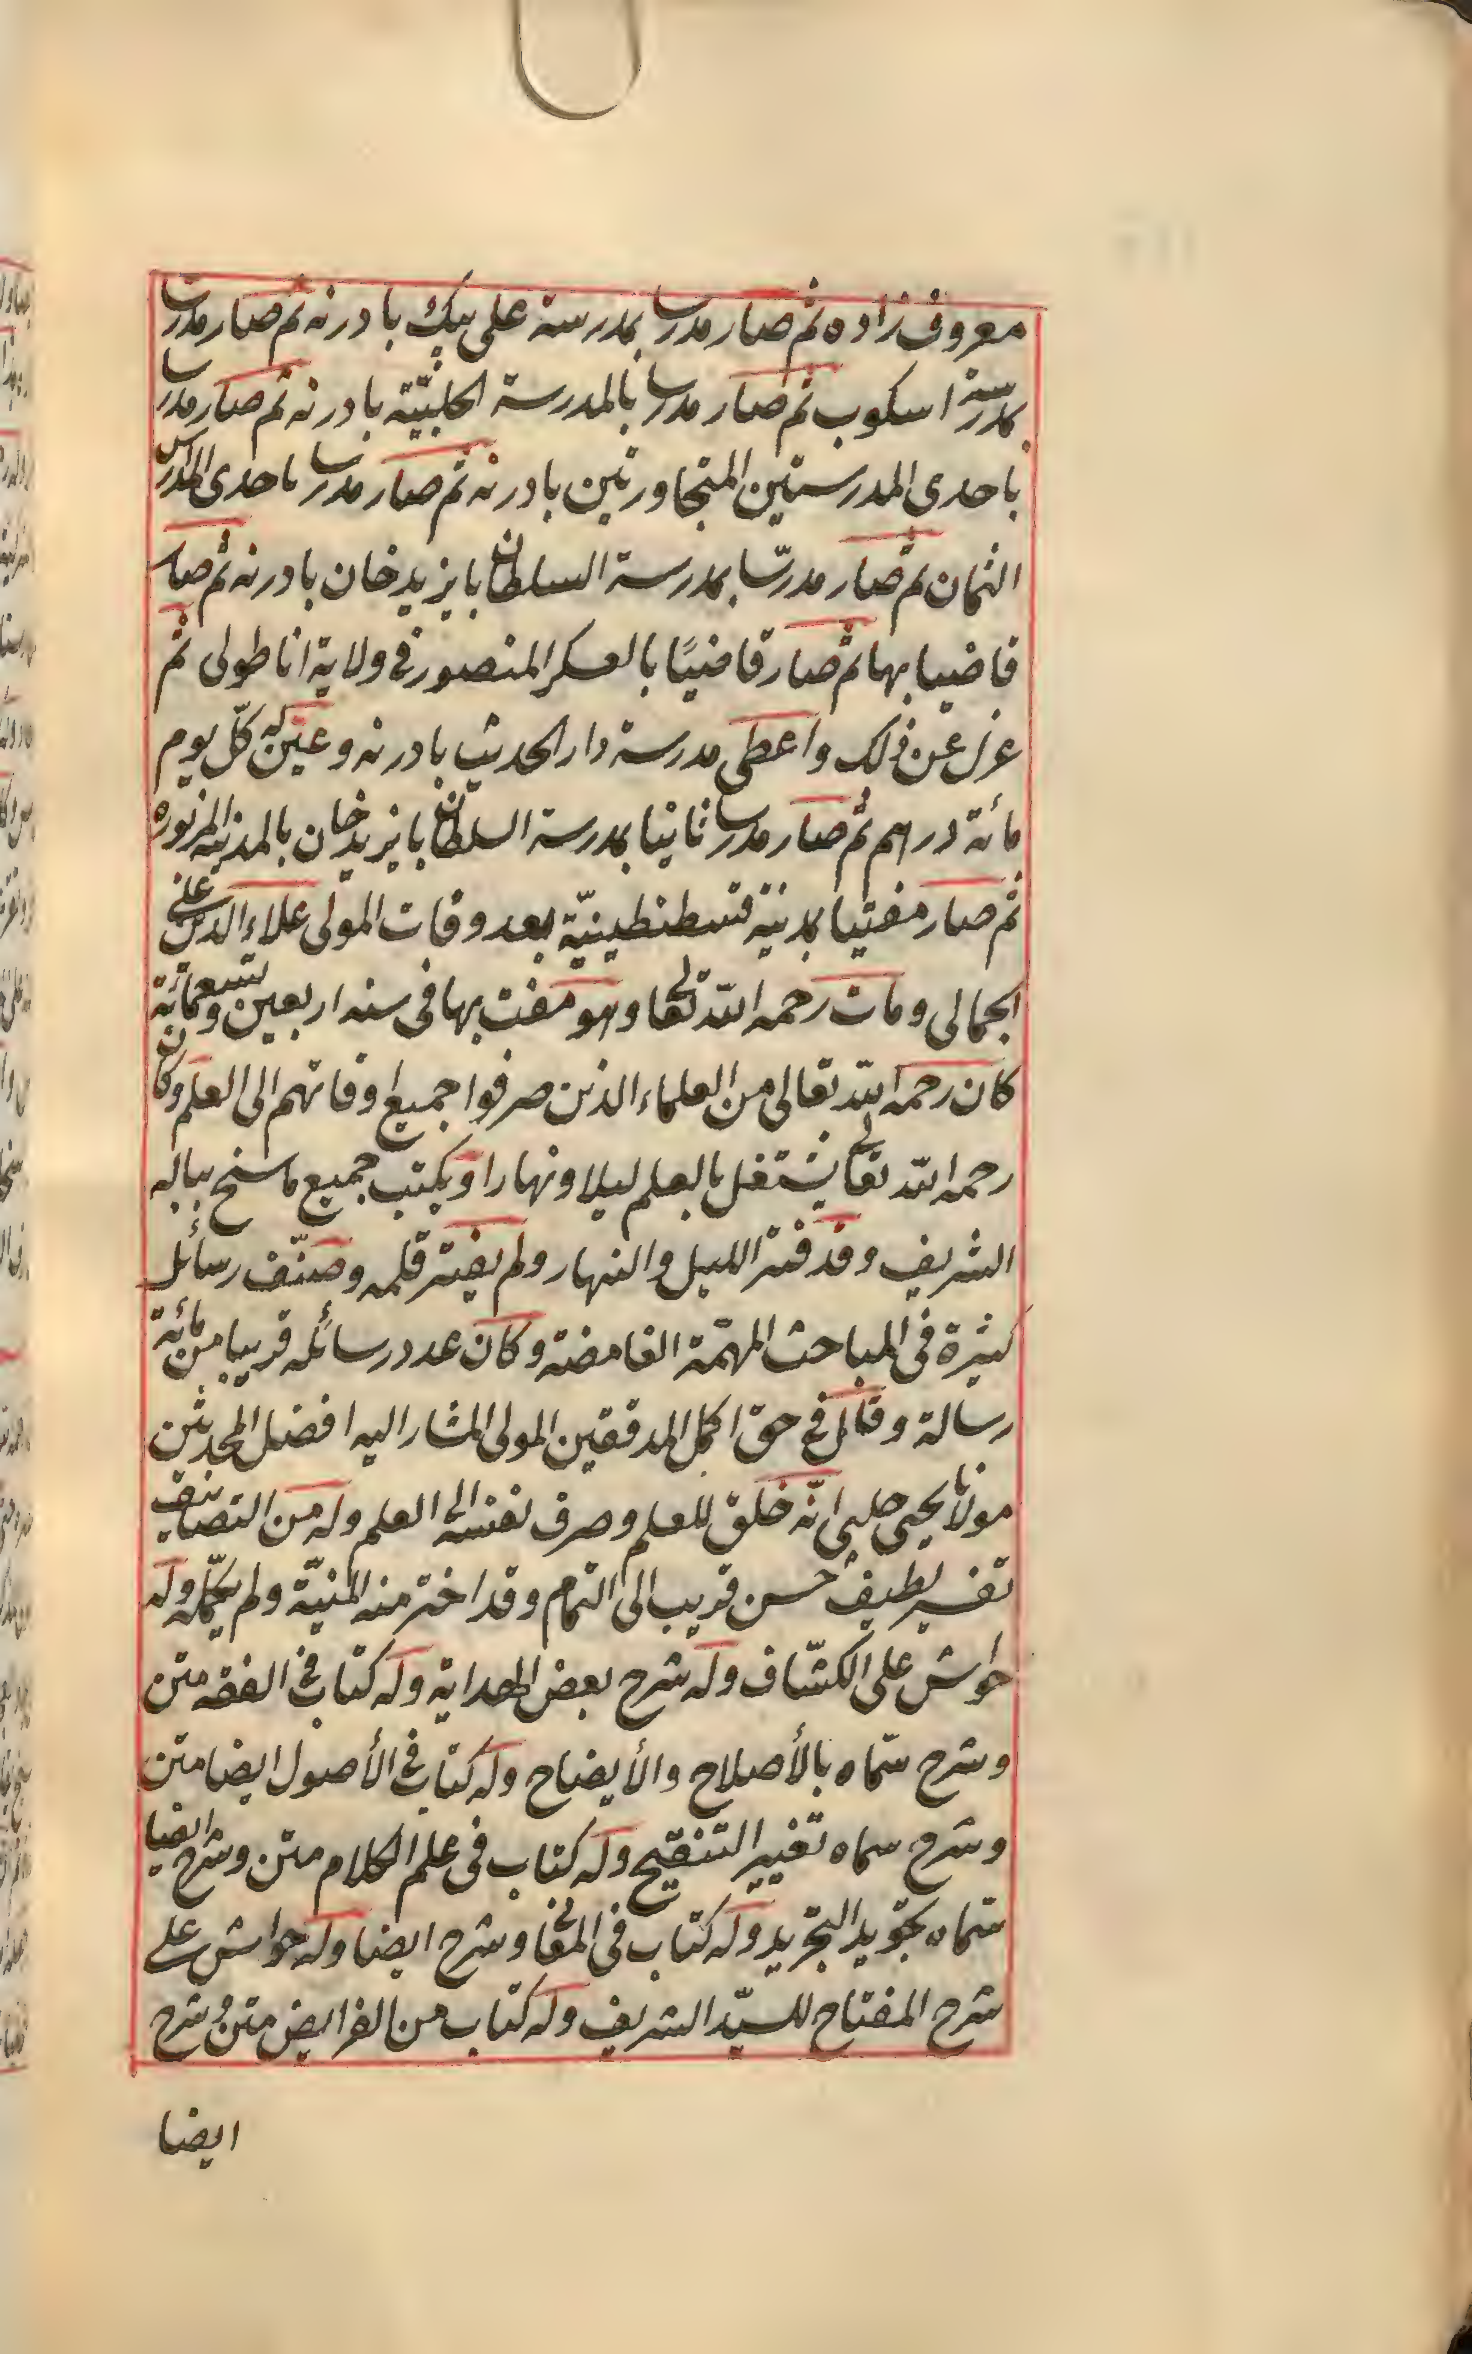 معروف زاده ثم صار مدرسا بمدرسة على بيك بادرنه ثم صار مدرسا
بمدرسة اسكوب ثم صار مدرسا بالمدرسة الحلبيّة بادرنه ثم صار مدرسا
باحدى المدرستين المتجاورتين بادرنه ثم صار مدرسا باحدى المدارس
الثمان ثم صار مدرّسا بمدرسة السلطان بايزيد خان بادرنه ثم صار
قاضيا بها ثم صار قاضيًا بالعسكر المنصور فى ولاية اناطولى ثم
عزل عن ذلك واعطى مدرسة دار الحديث بادرنه وعيّن له كلّ يوم
مائة دراهم ثم صار مدرسا ثانيا بمدرسة السلطان بايزيد خان بالمدينة المزبوره
ثم صار مفتيا بمدينة قسطنطينيّة بعد وفات المولى علاء الدين على
الجمالى ومات رحمه اللّه تعالى وهو مفت بها فى سنه اربعين وتسعمائة
كان رحمه اللّه تعالى من العلماء الذين صرفوا جميع اوقاتهم الى العلم وكان
رحمه اللّه تعالى يشتغل بالعلم ليلا ونهارا ويكتب جميع ما سنح بباله
الشريف وقد فتر الليل والنهار ولم يفتر قلمه وصنّف رسائل
كثيرة فى المباحث المهمّة الغامضة وكان عدد رسائله قريبا من مائة
رسالة وقال فى حق اكمل المدققين المولى المشار اليه افضل المحدثين
مولانا يحيى جلبى انّه خلق للعلم وصرف نفسه الى العلم وله من التصانيف
تفسير لطيف حسن قريب الى التمام وقد اخترمته المنيّة ولم يكمّله وله
حواش على الكشّاف وله شرح بعض الهداية وله كتاب فى الفقه متن
وشرح سمّاه بالأصلاح والأيضاح وله كتاب فى الأصول ايضا متن
وشرح سماه تغيير التنقيح وله كتاب فى علم الكلام متن وشرح ايضا
سمّاه بتجويد التجريد وله كتاب فى المعانى وشرح ايضا وله حواش على
شرح المفتاح للسيّد الشريف وله كتاب من الفرايض متن وشرح
ايضا